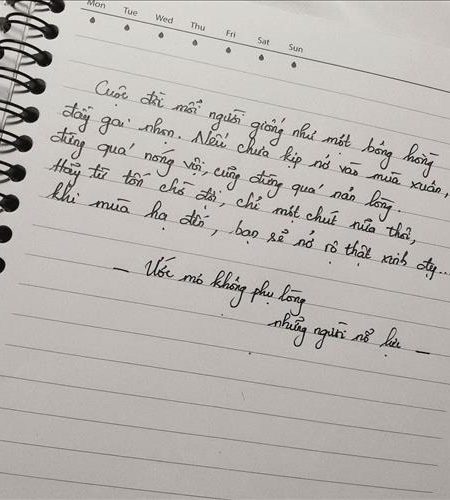 Mon Tue Wed Thu Fri Sat Sun
Cuộc đời mỗi người giống như một bông hồng
đầy gai nhọn. Nếu chưa kịp nở vào mùa xuân,
đừng quá nóng vội, cũng đừng quá nản lòng.
Hãy từ tốn chờ đợi, chỉ một chút nữa thôi,
khi mùa hạ đến, bạn sẽ nở rộ thật xinh đẹp...
— Ước mơ không phụ lòng
những người nỗ lực —